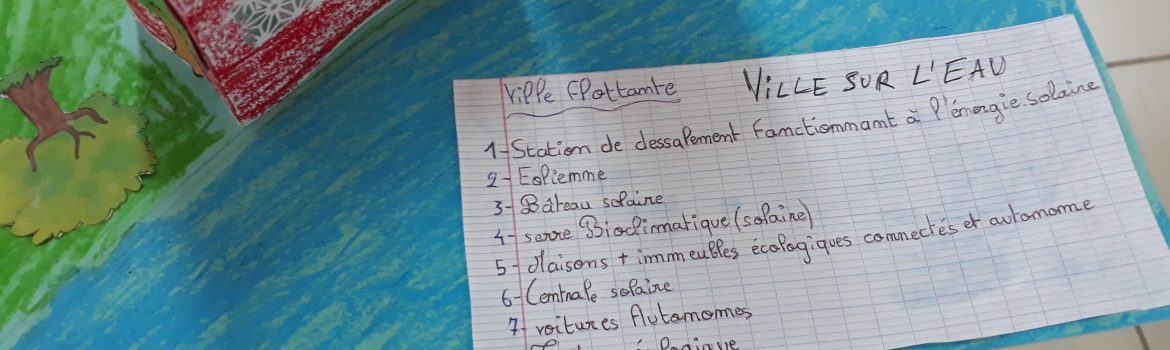 Ville flottante
VILLE SUR L'EAU
1- Station de dessalement fonctionnant à l'énergie solaire
2- Eolienne
3- Bâteau solaire
4- serre Bioclimatique (solaire)
5- Maisons + immeubles écologiques connectés et autonome
6- Centrale solaire
7- voitures Autonomes